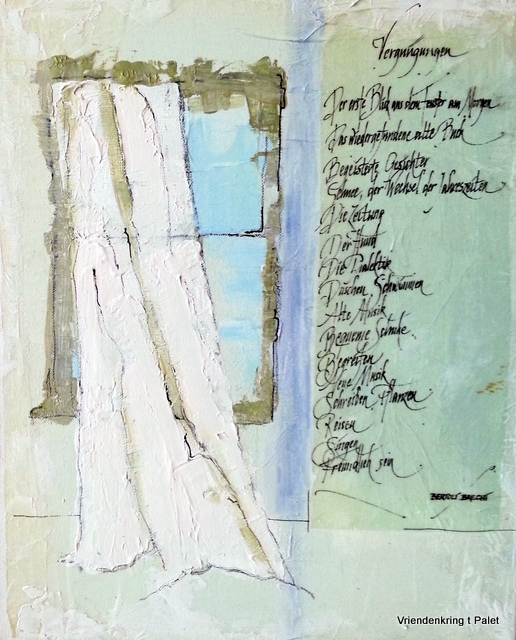 Vergnügungen
Der erste Blick aus dem Fenster am Morgen
Das wiedergefundene alte Buch
Begeisterte Gesichter
Schnee, der Wechsel der Jahreszeiten
Die Zeitung
Der Hund
Die Dialektik
Duschen, Schwimmen
Alte Musik
Bequeme Schuhe
Begreifen
Neue Musik
Schreiben, Pflanzen
Reisen
Singen
Freundlich sein
BERTOLT BRECHT
Vriendenkring t Palet